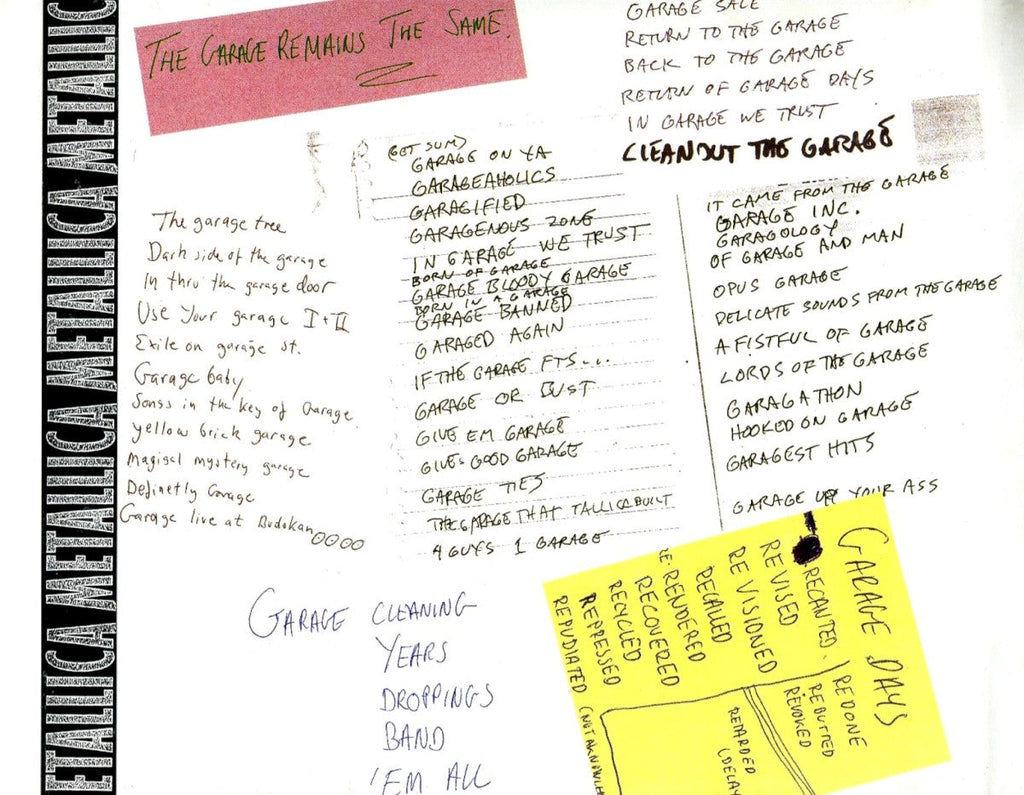 METALLICA METALLICA METALLICA METALLICA
THE GARAGE REMAINS THE SAME.
GARAGE SALE
RETURN TO THE GARAGE
BACK TO THE GARAGE
RETURN OF GARAGE DAYS
IN GARAGE WE TRUST
CLEANOUT THE GARAGE
The garage tree
Dark side of the garage
In thru the garage door
Use Your garage I + II
Exile on garage st.
Garage baby
Songs in the key of Garage
yellow brick garage
Magical mystery garage
Definetly Garage
Garage live at Budokan
(GET SUM)
GARAGE ON YA
GARAGEAHOLICS
GARAGIFIED
GARAGENOUS ZONE
IN GARAGE WE TRUST
BORN OF GARAGE
GARAGE BLOODY GARAGE
BORN IN A GARAGE
GARAGE BANNED
GARAGED AGAIN
IF THE GARAGE FTS...
GARAGE OR BUST
GIVE EM GARAGE
GIVES GOOD GARAGE
GARAGE TIES
THE GARAGE THAT TALLICA BUILT
4 GUYS 1 GARAGE
IT CAME FROM THE GARAGE
GARAGE INC.
GARAGOLOGY
OF GARAGE AND MAN
OPUS GARAGE
DELICATE SOUNDS FROM THE GARAGE
A FISTFUL OF GARAGE
LORDS OF THE GARAGE
GARAGATHON
HOOKED ON GARAGE
GARAGEST HITS
GARAGE UP YOUR ASS
GARAGE CLEANING
YEARS
DROPPINGS
BAND
'EM ALL
GARAGE DAYS
RECANTED
REDONE
REVISED
REBUTTED
REVISIONED
REVOKED
RECALLED
RE-RENDERED
RECOVERED
RECYCLED
REPRESSED
REPUDIATED
RETARDED
(DELAY